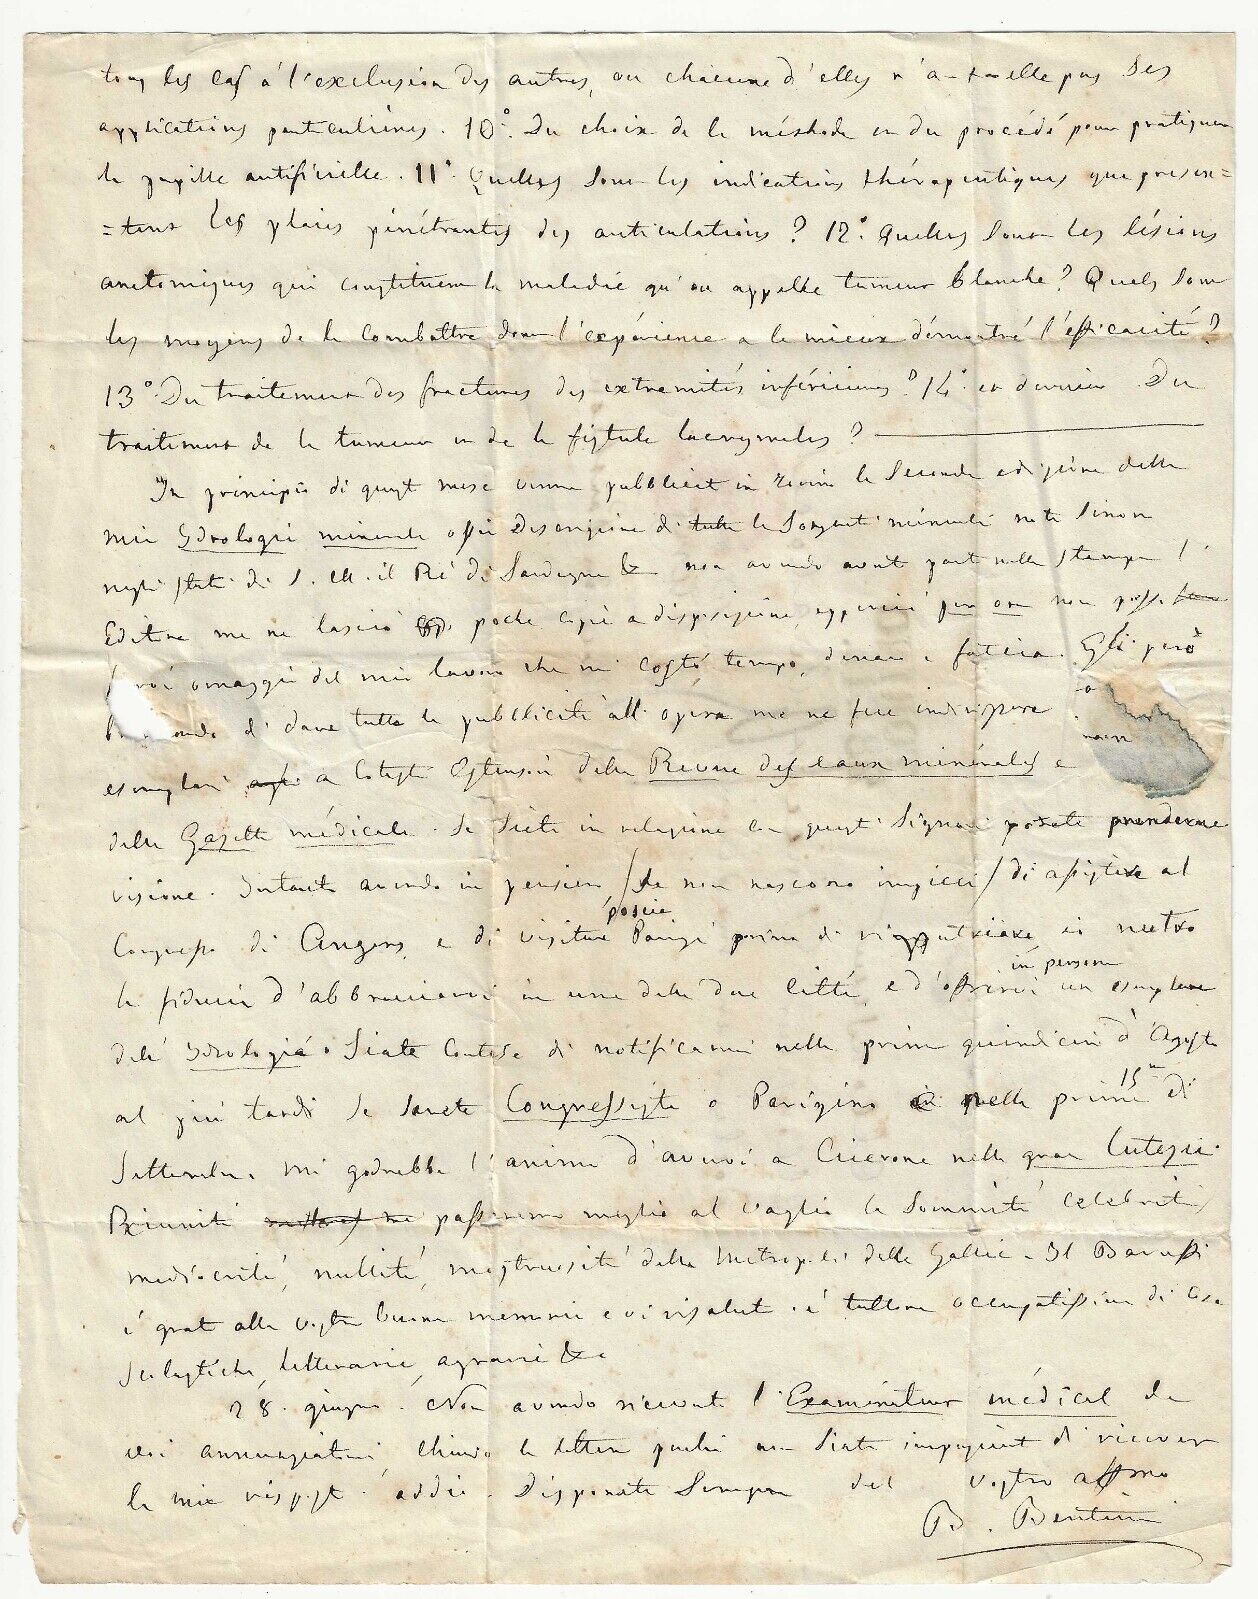 tous les cas à l'exclusion des autres, ou chacune d'elles n'a-t-elle pas des
applications particulières. 10° Du choix de la méthode et du procédé pour pratiquer
la pupille artificielle. 11° Quelles sont les indications thérapeutiques que présen=
=tent les plaies pénétrantes des articulations? 12° Quelles sont les lésions
anatomiques qui constituent la maladie qu'on appelle tumeur blanche? Quels sont
les moyens de la combattre dont l'expérience a le mieux démontré l'efficacité?
13° Du traitement des fractures des extremités inférieures? 14° et dernier Du
traitement de la tumeur et de la fistule lacrymales?
In principio di questo mese venne pubblicata in Torino la seconda edizione della
mia Idrologia minerale ossia Descrizione di tutte le sorgenti minerali note sinora
negli stati di S. M. il Re di Sardegna &c non avendo avuto parte nella stampa l'
Editore me ne lasciò poche copie a disposizione, epperciò per ora non posso
farvi omaggio del mio lavoro che mi costò tempo, denaro e fatica. Gli però
di dare tutta la pubblicità all'opera me ne fece indirizzare
esemplari a cotesti Estensori della Revue des eaux minérales e
della Gazette médicale. Se siete in relazione con questi Signori potete prenderne
visione. Intanto avendo in pensiero /se non nascono impicci/ di assistere al
Congresso di Angers, e di visitare poscia Parigi prima di rippatriare, io nutro
la fiducia d'abbracciarvi in una delle due città, e d'offrirvi in persona un esemplare
dell'Idrologia. Siate cortese di notificarmi nella prima quindicina d'Agosto
al più tardi se sarete Congressista o Parigino nella prima 15na di
Settembre. Mi godrebbe l'animo d'avervi a Cicerone nella gran Lutezia.
Riuniti passeremo meglio al vaglio le sommità celebrità,
mediocrità, nullità, mostruosità della Metropoli delle Gallie. Il Baruffi
è grato alla vostra buona memoria e vi risaluta. è tuttora occupatissimo di cose
scolastiche, letterarie, agrarie &c.
28. giugno. Non avendo ricevuto l'Examinateur médical da
voi annunziatomi, chiudo la lettera perchè non siate impaziente di ricever
la mia risposta. addio. Disponete sempre del vostro affmo
B. Bertini